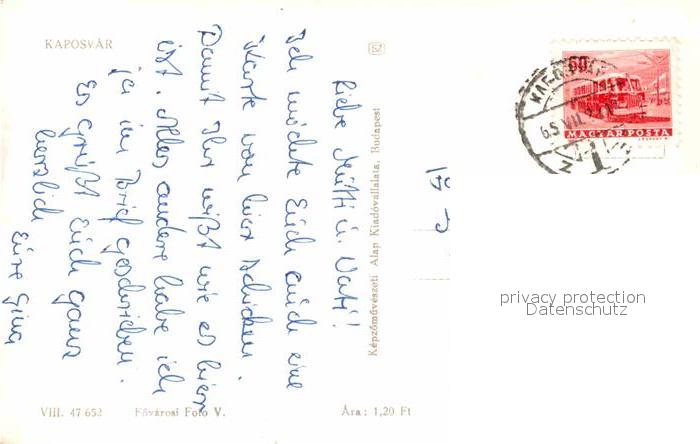 KAPOSVÁR
SZ
Liebe Mutti u. Vati!
Ich möchte Euch auch eine
Karte von hier schicken.
Damit Ihr wißt wie es hier
ist. Alles andere habe ich
ja im Brief geschrieben.
Es grüßt Euch ganz
herzlich
Eure
Képzőművészeti Alap Kiadóvállalata, Budapest
VIII. 47 652
Fővárosi Fotó V.
Ára : 1,20 Ft
60f
MAGYAR POSTA
65 VII
1
privacy protection
Datenschutz